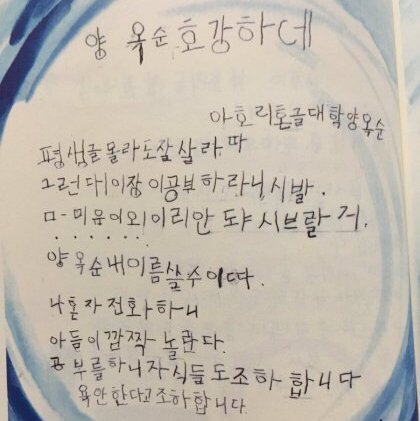 양 옥순 호강하네
아흐리혼글대학양옥순
평생글몰라도잘살라따
그런대이잠이공부하라니시발.
ㅁ-미움이외이리안돠시브랄거.
......
양옥순내이름쓸수이따.
나혼자전화하니
아들이깜짝놀란다.
공부를하니자식들도조하합니다
욕안한다고조하합니다.